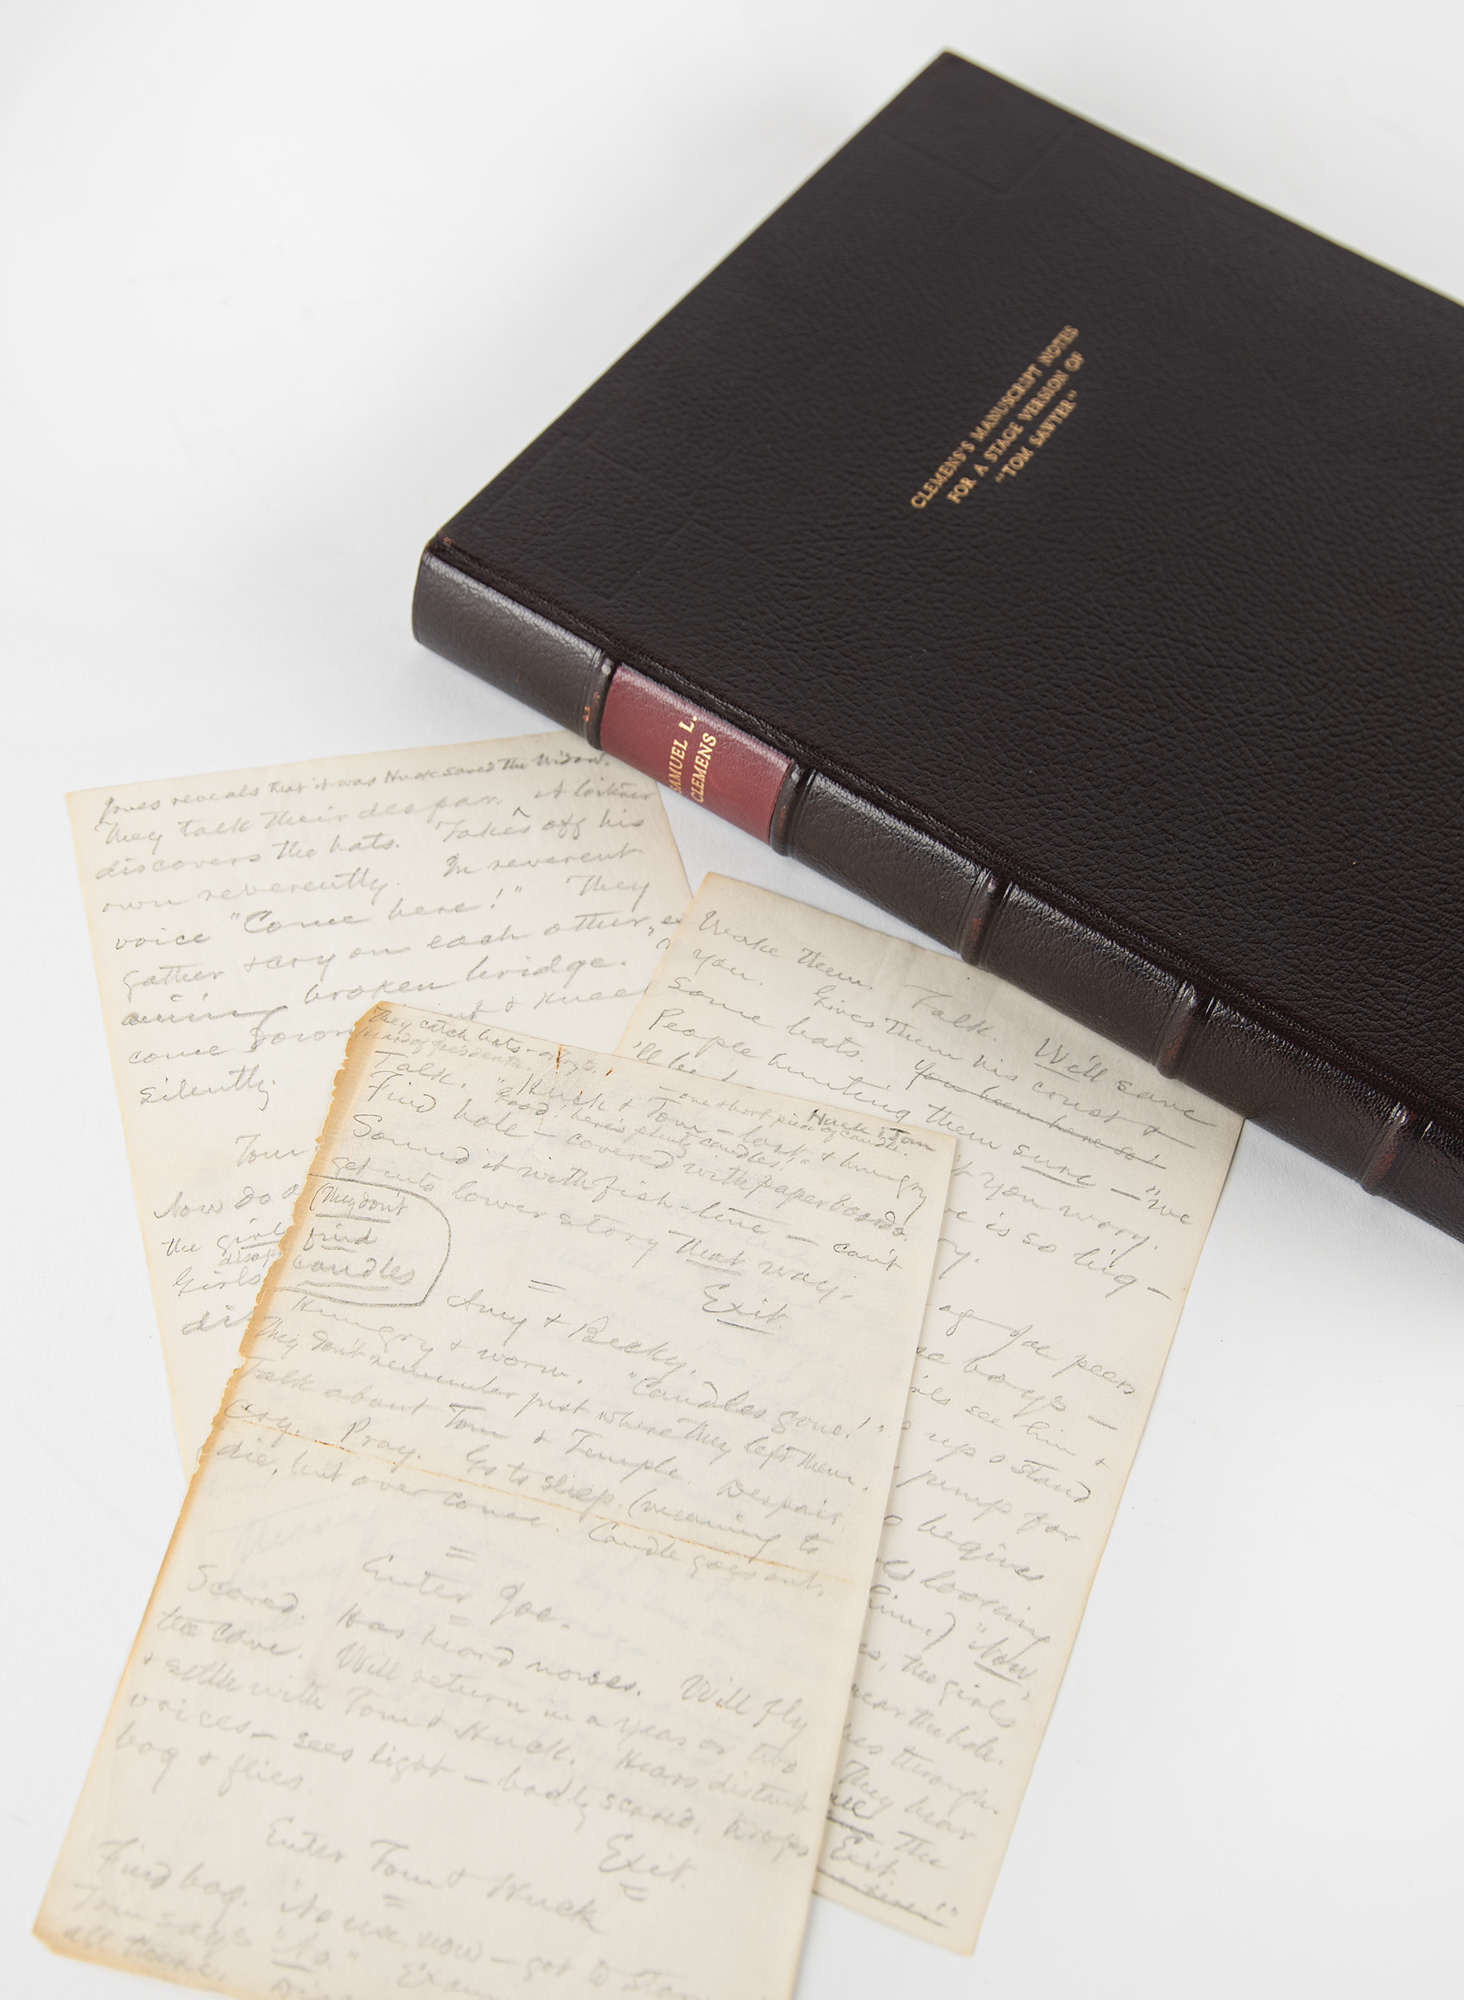 CLEMENS'S MANUSCRIPT NOTES
FOR A STAGE VERSION OF
"TOM SAWYER"
SAMUEL L.
CLEMENS
Jones reveals that it was Huck saved the Widow.
They talk their despair. A loiterer
discovers the hats. Takes off his
own reverently. In reverent
voice "Come here!" They
gather & cry on each other,
broken bridge.
come down front & kneel
silently.
Tom
How do
the girls
Girls
dis
Wake them. Talk. We'll save
you. Gives them his coat &
Some bats. You been here so
People hunting them sure — "we
'll be
t you worry.
e is so big —
ry.
Joe peers
boys —
ls see him &
up & stand
pump for
begins
ls looking
him.) "Now,
s, the girls
near the hole.
hes through.
They hear
the
Exit.
They catch bats
Talk. Huck & Tom — lost & hungry
one short piece of candle.
Huck & Tom
"Good, here's plenty candles!"
Find hole — covered with paper boards.
Sound it with fish-line — can't
get into lower story that way.
Exit.
(They don't
find
candles
Amy & Becky.
Hungry & worn. "Candles gone!"
They don't remember just where they left them.
Talk about Tom & Temple. Despair.
Cry. Pray. Go to sleep. (meaning to
die, but overcome. Candle goes out.
Enter Joe.
Scared. Has heard noises. Will fly
the cave. Will return in a year or two
& settle with Tom & Huck. Hears distant
voices — sees light — badly scared, drops
bag & flies.
Exit.
Enter Tom & Huck
Find bag. "No use, now — got to
Tom says "No."